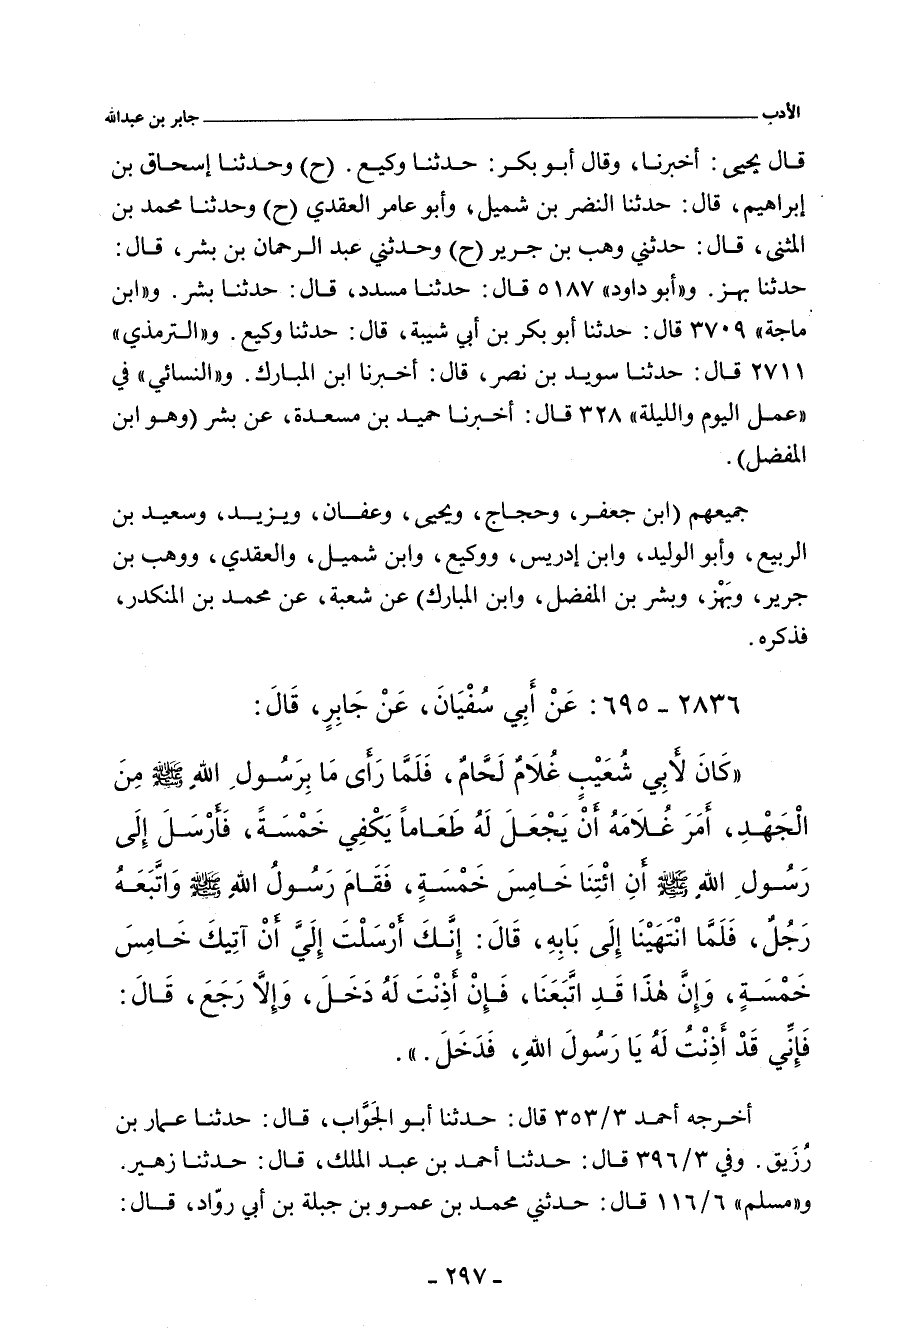 الأدب ــــــــــــــــــــ جابر بن عبدالله
قال يحيى : أخبرنا، وقال أبو بكر : حدثنا وكيع . (ح) وحدثنا إسحاق بن
إبراهيم، قال: حدثنا النضر بن شميل، وأبو عامر العقدي (ح) وحدثنا محمد بن
المثنى، قال: حدثني وهب بن جرير (ح) وحدثني عبد الرحمان بن بشر، قال:
حدثنا بهز. و«أبو داود» ٥١٨٧ قال: حدثنا مسدد، قال: حدثنا بشر. و«ابن
ماجة» ٣٧٠٩ قال: حدثنا أبو بكر بن أبي شيبة، قال: حدثنا وكيع. و«الترمذي»
٢٧١١ قال: حدثنا سويد بن نصر، قال: أخبرنا ابن المبارك. و«النسائي» في
«عمل اليوم والليلة» ٣٢٨ قال: أخبرنا حميد بن مسعدة، عن بشر (وهو ابن
المفضل).
جميعهم (ابن جعفر، وحجاج، ويحيى، وعفان، ويزيد، وسعيد بن
الربيع، وأبو الوليد، وابن إدريس، ووكيع، وابن شميل، والعقدي، ووهب بن
جرير، وبَهْز، وبشر بن المفضل، وابن المبارك) عن شعبة، عن محمد بن المنكدر،
فذكره.
٢٨٣٦ - ٦٩٥: عَنْ أَبِي سُفْيَانَ، عَنْ جَابِرٍ، قَالَ:
«كَانَ لأَبِي شُعَيْبٍ غُلَامٌ لَحَّامٌ، فَلَمَّا رَأَى مَا بِرَسُولِ اللهِ ﷺ مِنَ
الْجَهْدِ، أَمَرَ غُلَامَهُ أَنْ يَجْعَلَ لَهُ طَعَاماً يَكْفِي خَمْسَةً، فَأَرْسَلَ إِلَى
رَسُولِ اللهِ ﷺ أَنِ ائْتِنَا خَامِسَ خَمْسَةٍ، فَقَامَ رَسُولُ اللهِ ﷺ وَاتَّبَعَهُ
رَجُلٌ، فَلَمَّا انْتَهَيْنَا إِلَى بَابِهِ، قَالَ: إِنَّكَ أَرْسَلْتَ إِلَيَّ أَنْ آتِيكَ خَامِسَ
خَمْسَةٍ، وَإِنَّ هٰذَا قَدِ اتَّبَعَنَا، فَإِنْ أَذِنْتَ لَهُ دَخَلَ، وَإِلَّا رَجَعَ، قَالَ:
فَإِنِّي قَدْ أَذِنْتُ لَهُ يَا رَسُولَ اللهِ، فَدَخَلَ.».
أخرجه أحمد ٣٥٣/٣ قال: حدثنا أبو الجَوَّاب، قال: حدثنا عمار بن
رُزَيق. وفي ٣٩٦/٣ قال: حدثنا أحمد بن عبد الملك، قال: حدثنا زهير.
و«مسلم» ١١٦/٦ قال: حدثني محمد بن عمرو بن جبلة بن أبي روّاد، قال:
- ٢٩٧ -